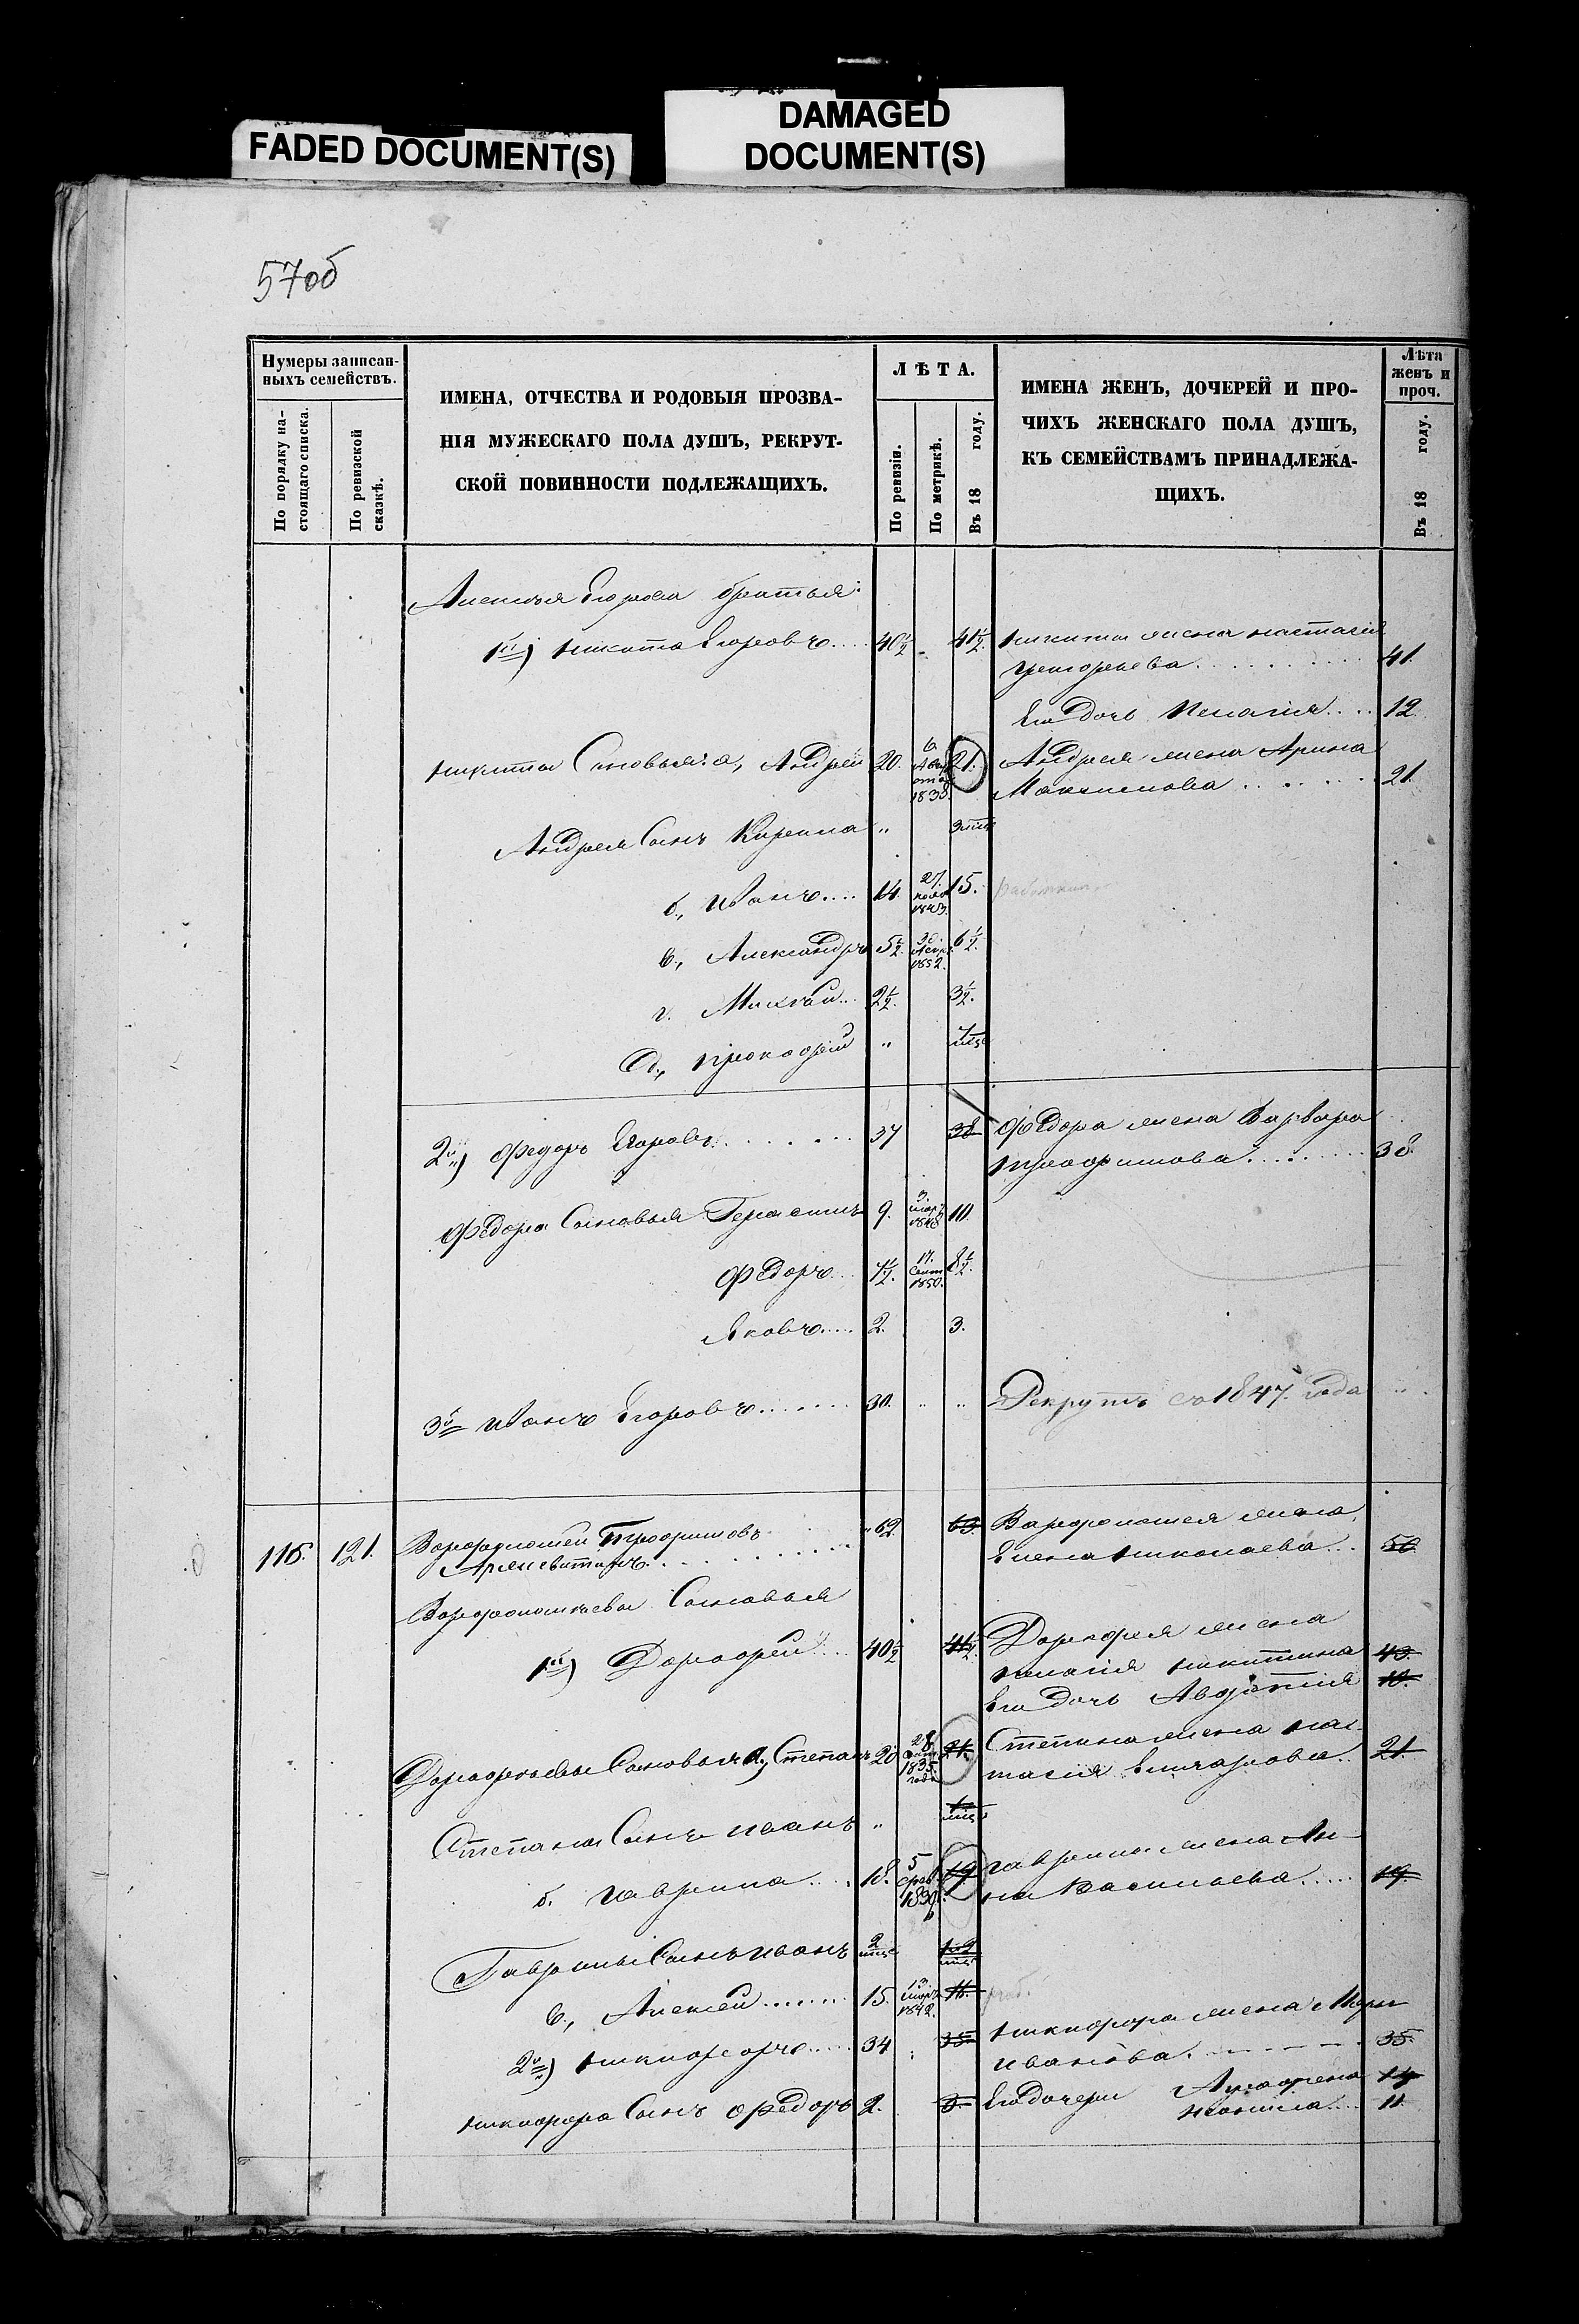 FADED DOCUMENT(S)
DAMAGED
DOCUMENT(S)
57об
Нумеры записан-
ныхъ семействъ.
По порядку на-
стоящаго списка.
По ревизской
сказкѣ.
ИМЕНА, ОТЧЕСТВА И РОДОВЫЯ ПРОЗВА-
НІЯ МУЖЕСКАГО ПОЛА ДУШЪ, РЕКРУТ-
СКОЙ ПОВИННОСТИ ПОДЛЕЖАЩИХЪ.
ЛѢТА.
По ревизіи.
По метрикѣ.
Въ 18 году.
ИМЕНА ЖЕНЪ, ДОЧЕРЕЙ И ПРО-
ЧИХЪ ЖЕНСКАГО ПОЛА ДУШЪ,
КЪ СЕМЕЙСТВАМЪ ПРИНАДЛЕЖА-
ЩИХЪ.
Лѣта
женъ и
проч.
Въ 18 году.
Алексѣя Егорова братья:
1й) Никита Егоровъ.... 40½ 41½. Никиты жена Настасія
Григорьева 41.
Его дочь Пелагія.... 12.
Никиты Сыновья: а, Андрей 20. 21. Андрея жена Арина
1835. Максимова 21.
Андрея Сынъ Кирила " 3 мце
б., Иванъ.... 14. 27. 1843. 15.
в., Александръ 5½. 30. 1852. 6½.
г. Михай.. 2½. 3½.
д., Прокофій " 7 мце
2й) Федоръ Егоровъ 37 38 Федора жена Варвара
Трофимова 38.
Федора Сыновья Герасимъ 9. 3. март 1848 10.
Федоръ... 7½. 17. Сент 1850. 8½.
Яковъ.... 2. 3.
3й Иванъ Егоровъ....... 30. " " Рекрутъ съ 1847. года "
116. 121. Варфоломей Трофимовъ 62. 63. Варфоломея жена
Елена Николаева.. 50
Варфоломѣевы Сыновья
1й) Дорофей.... 40½ 41½. Дорофея жена
Пелагія Никитина 43.
Его дочь Авдотія 10.
Дорофѣевы Сыновья: а, Степанъ 20 28 1835 года 21. Степана жена Нас-
тасія 21
Степана Сынъ Иванъ " мце
б. Гаврила.... 18. 5 фев. 19 Гаврилы жена Ан-
на Васильева..... 19.
Гаврилы Сынъ Иванъ 2 мце мце
в., Алексей........ 15. 13. март 1842. 16. раб.
2й) Никифоръ.... 34 35. Никифора жена Марья
Иванова. 35.
Никифора Сынъ Федоръ 2. 3. Его дочери Аграфена 14
Неонила.... 11.